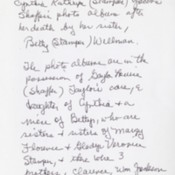 Cynthia Kathryn (Stamper)
Shaffer's photo album after
her death by her sister,
Betty (Stamper) Wellman.
The photo albums are in the
possession of Gayla
(Shaffer) Taylor's care, a
daughter of Cynthia & a
niece of Betty, who are
sisters & sisters of Margy
Florence & Gladys Veronica
Stamper, & the other 3
brothers, Clarence, Wm